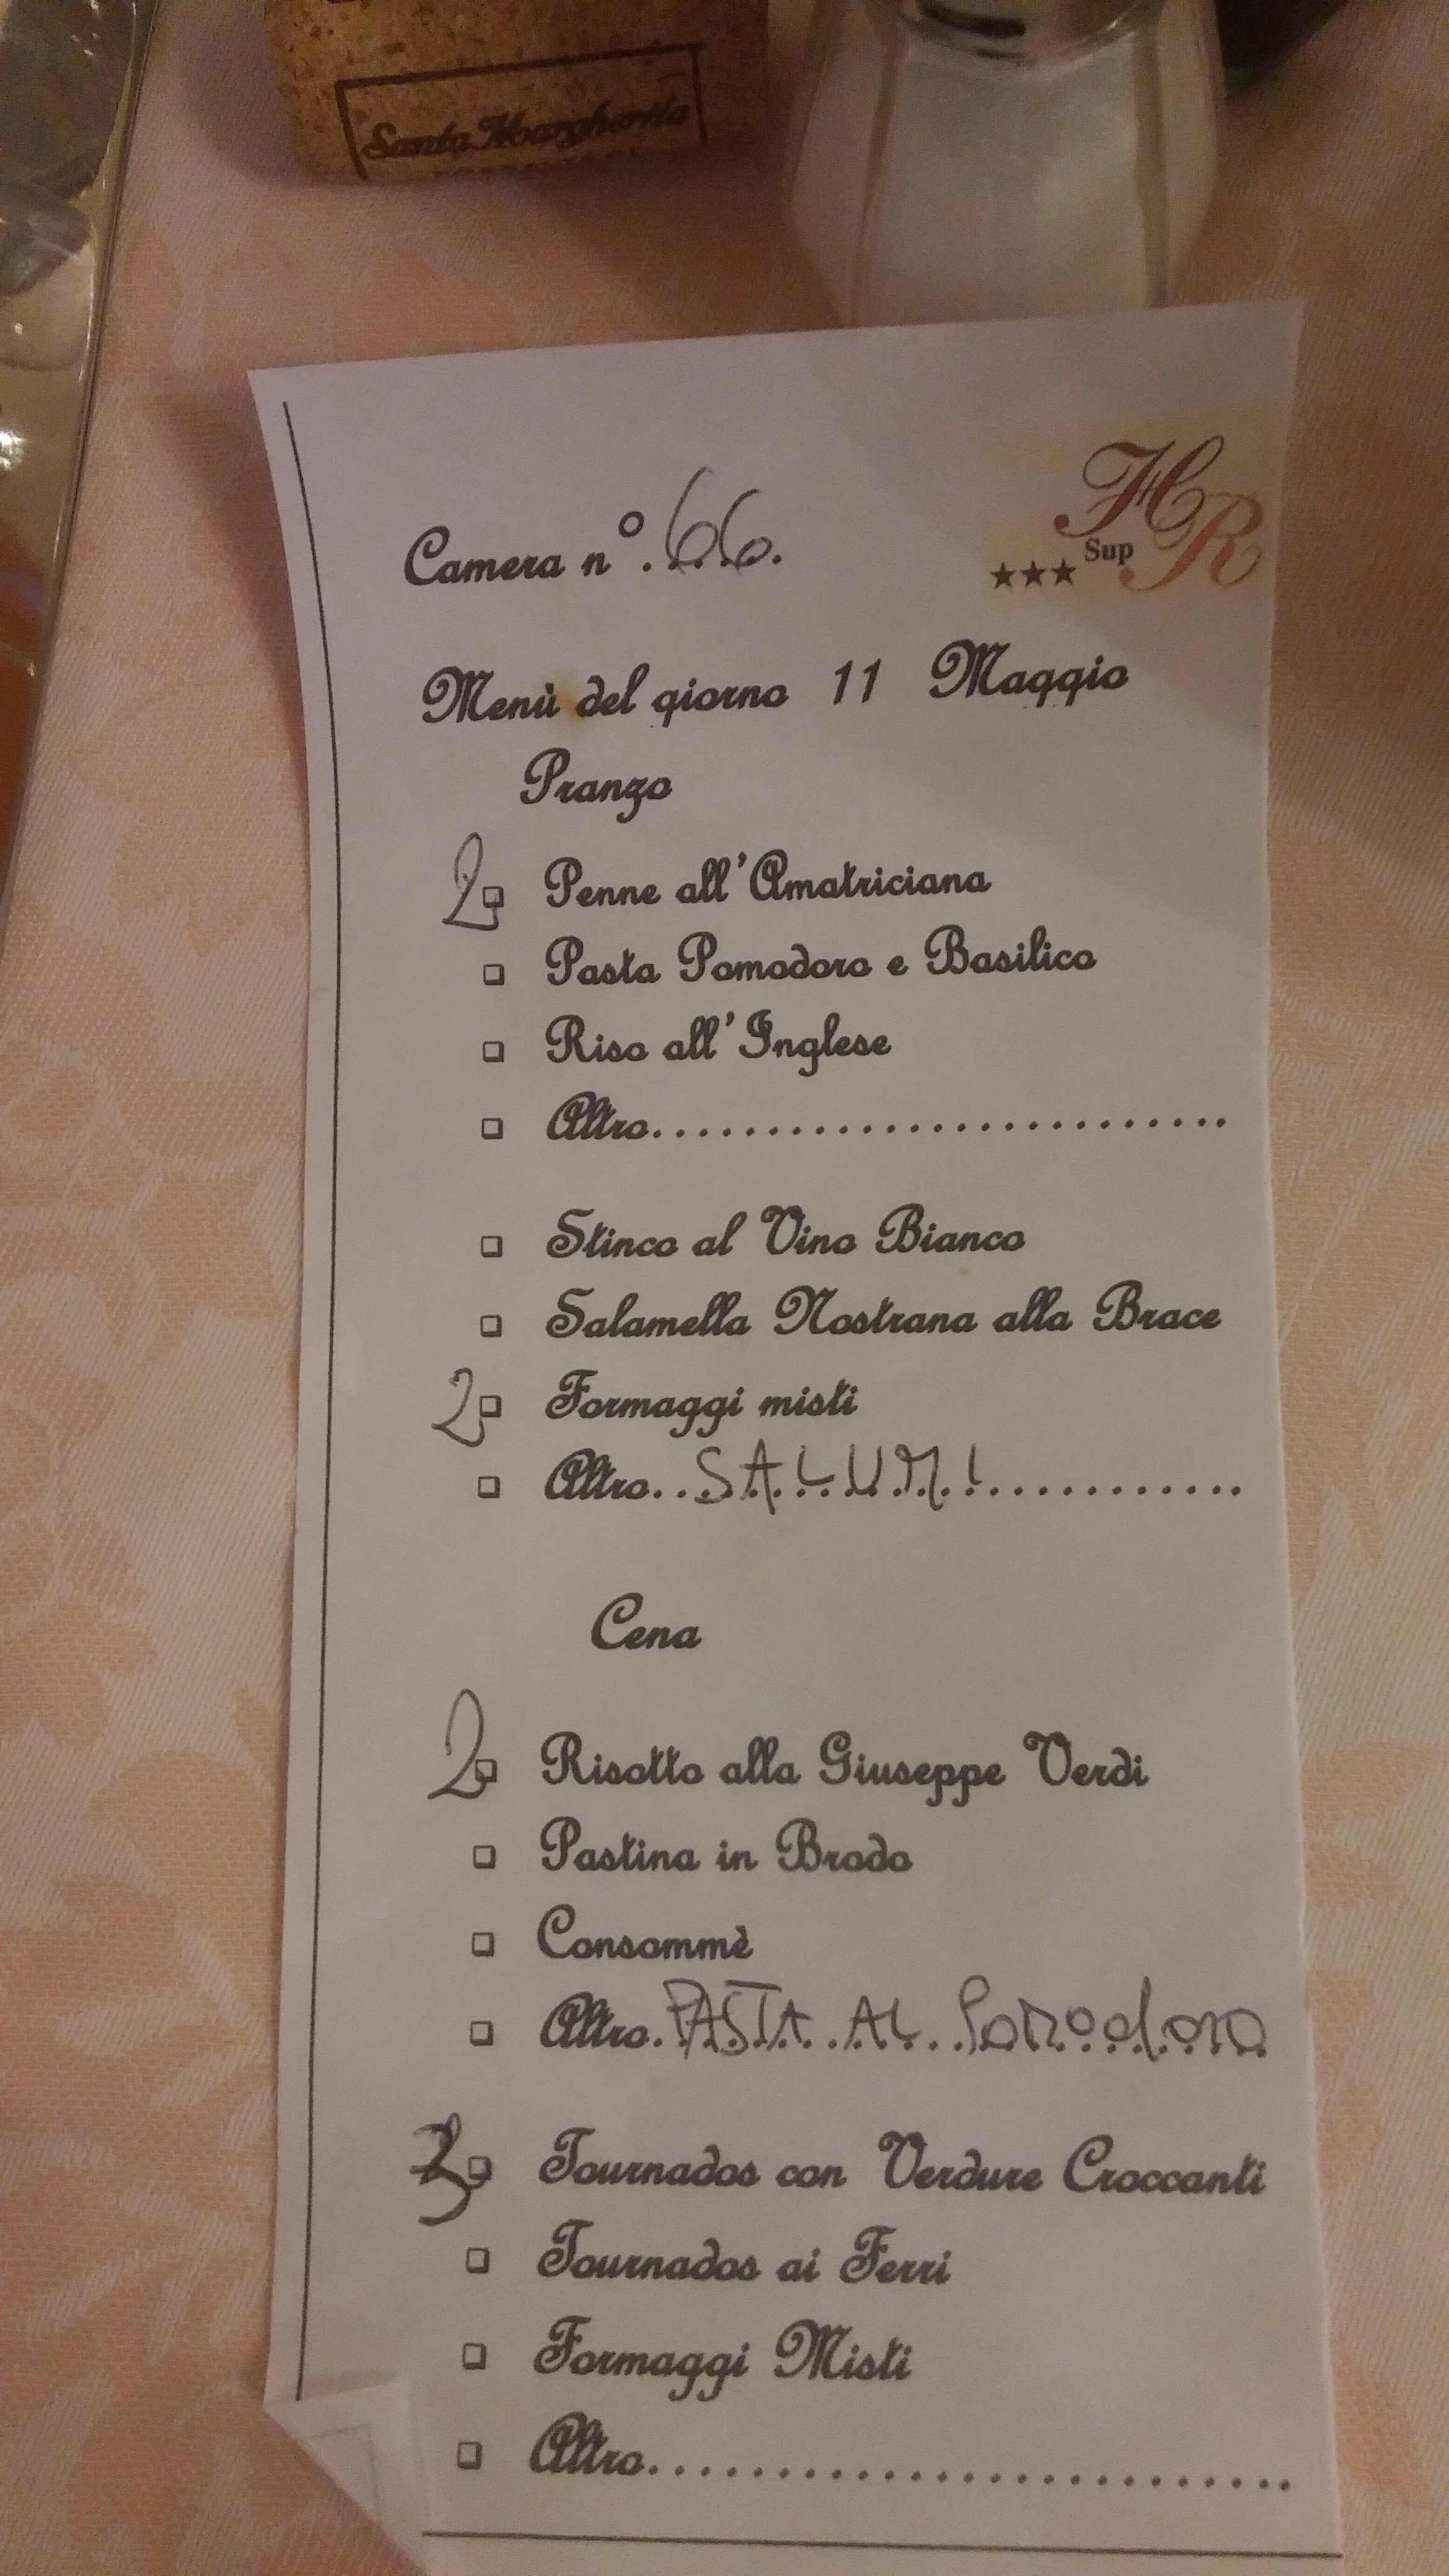 Santa Margherita
HR
★★★ Sup
Camera n°.66.
Menù del giorno 11 Maggio
Pranzo
2 ❑ Penne all'Amatriciana
❑ Pasta Pomodoro e Basilico
❑ Riso all'Inglese
❑ Altro..........................
❑ Stinco al Vino Bianco
❑ Salamella Nostrana alla Brace
2 ❑ Formaggi misti
❑ Altro..SALUMI............
Cena
2 ❑ Risotto alla Giuseppe Verdi
❑ Pastina in Brodo
❑ Consommè
❑ Altro.PASTA AL Pomodoro
3 ❑ Tournados con Verdure Croccanti
❑ Tournados ai Ferri
❑ Formaggi Misti
❑ Altro..........................